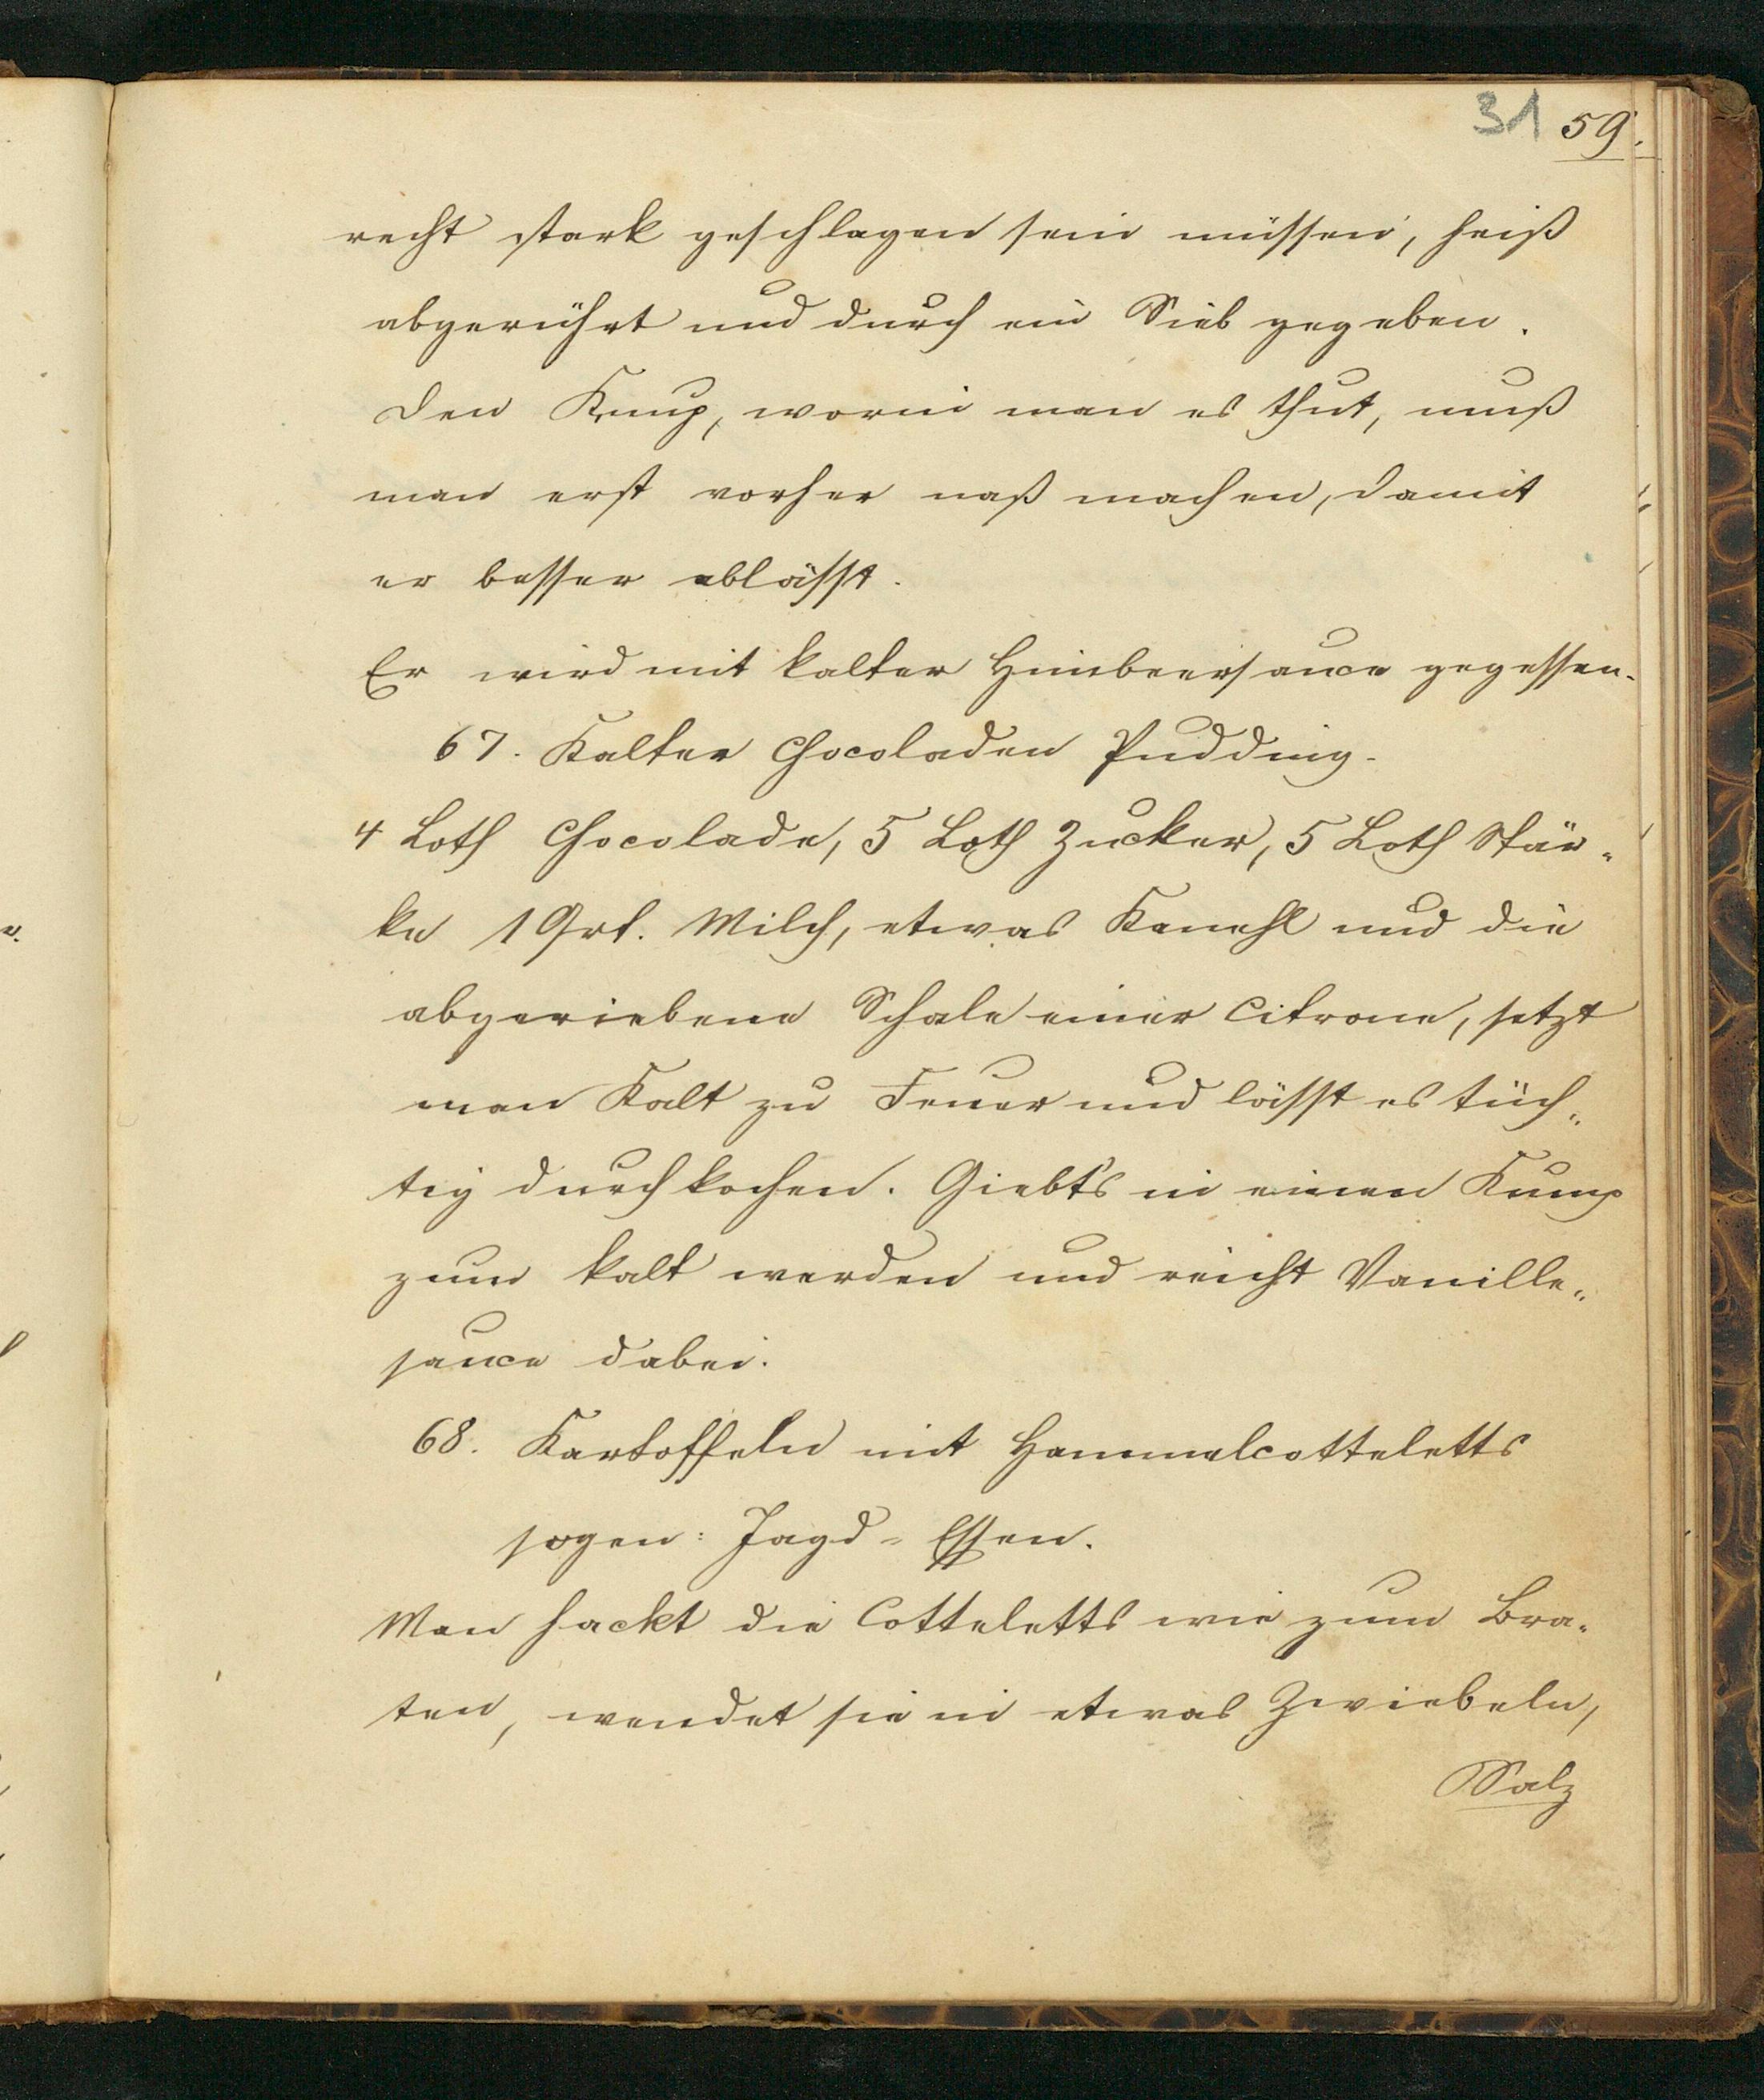 31 59.
recht stark geschlagen sein müssen, heiß
abgerührt und durch ein Sieb gegeben.
Den Kump, worin man es thut, muß
man erst vorher naß machen, damit
er besser ablässt.
Er wird mit kalter Himbeersauce gegessen.
67. Kalter Chocoladen Pudding.
4 Loth Chocolade, 5 Loth Zucker, 5 Loth Stär-
ke 1 Qrt. Milch, etwas Kanehl und die
abgeriebene Schale einer Citrone, setzt
man Kalt zu Feuer und lässt es tüch-
tig durchkochen. Giebt's in einen Kump
zum kalt werden und reicht Vanille-
sauce dabei.
68. Kartoffeln mit Hammelcotteletts
sogen: Jagd-Essen.
Man hackt die Cotteletts wie zum Bra-
ten, wendet sie in etwas Zwiebeln,
Salz